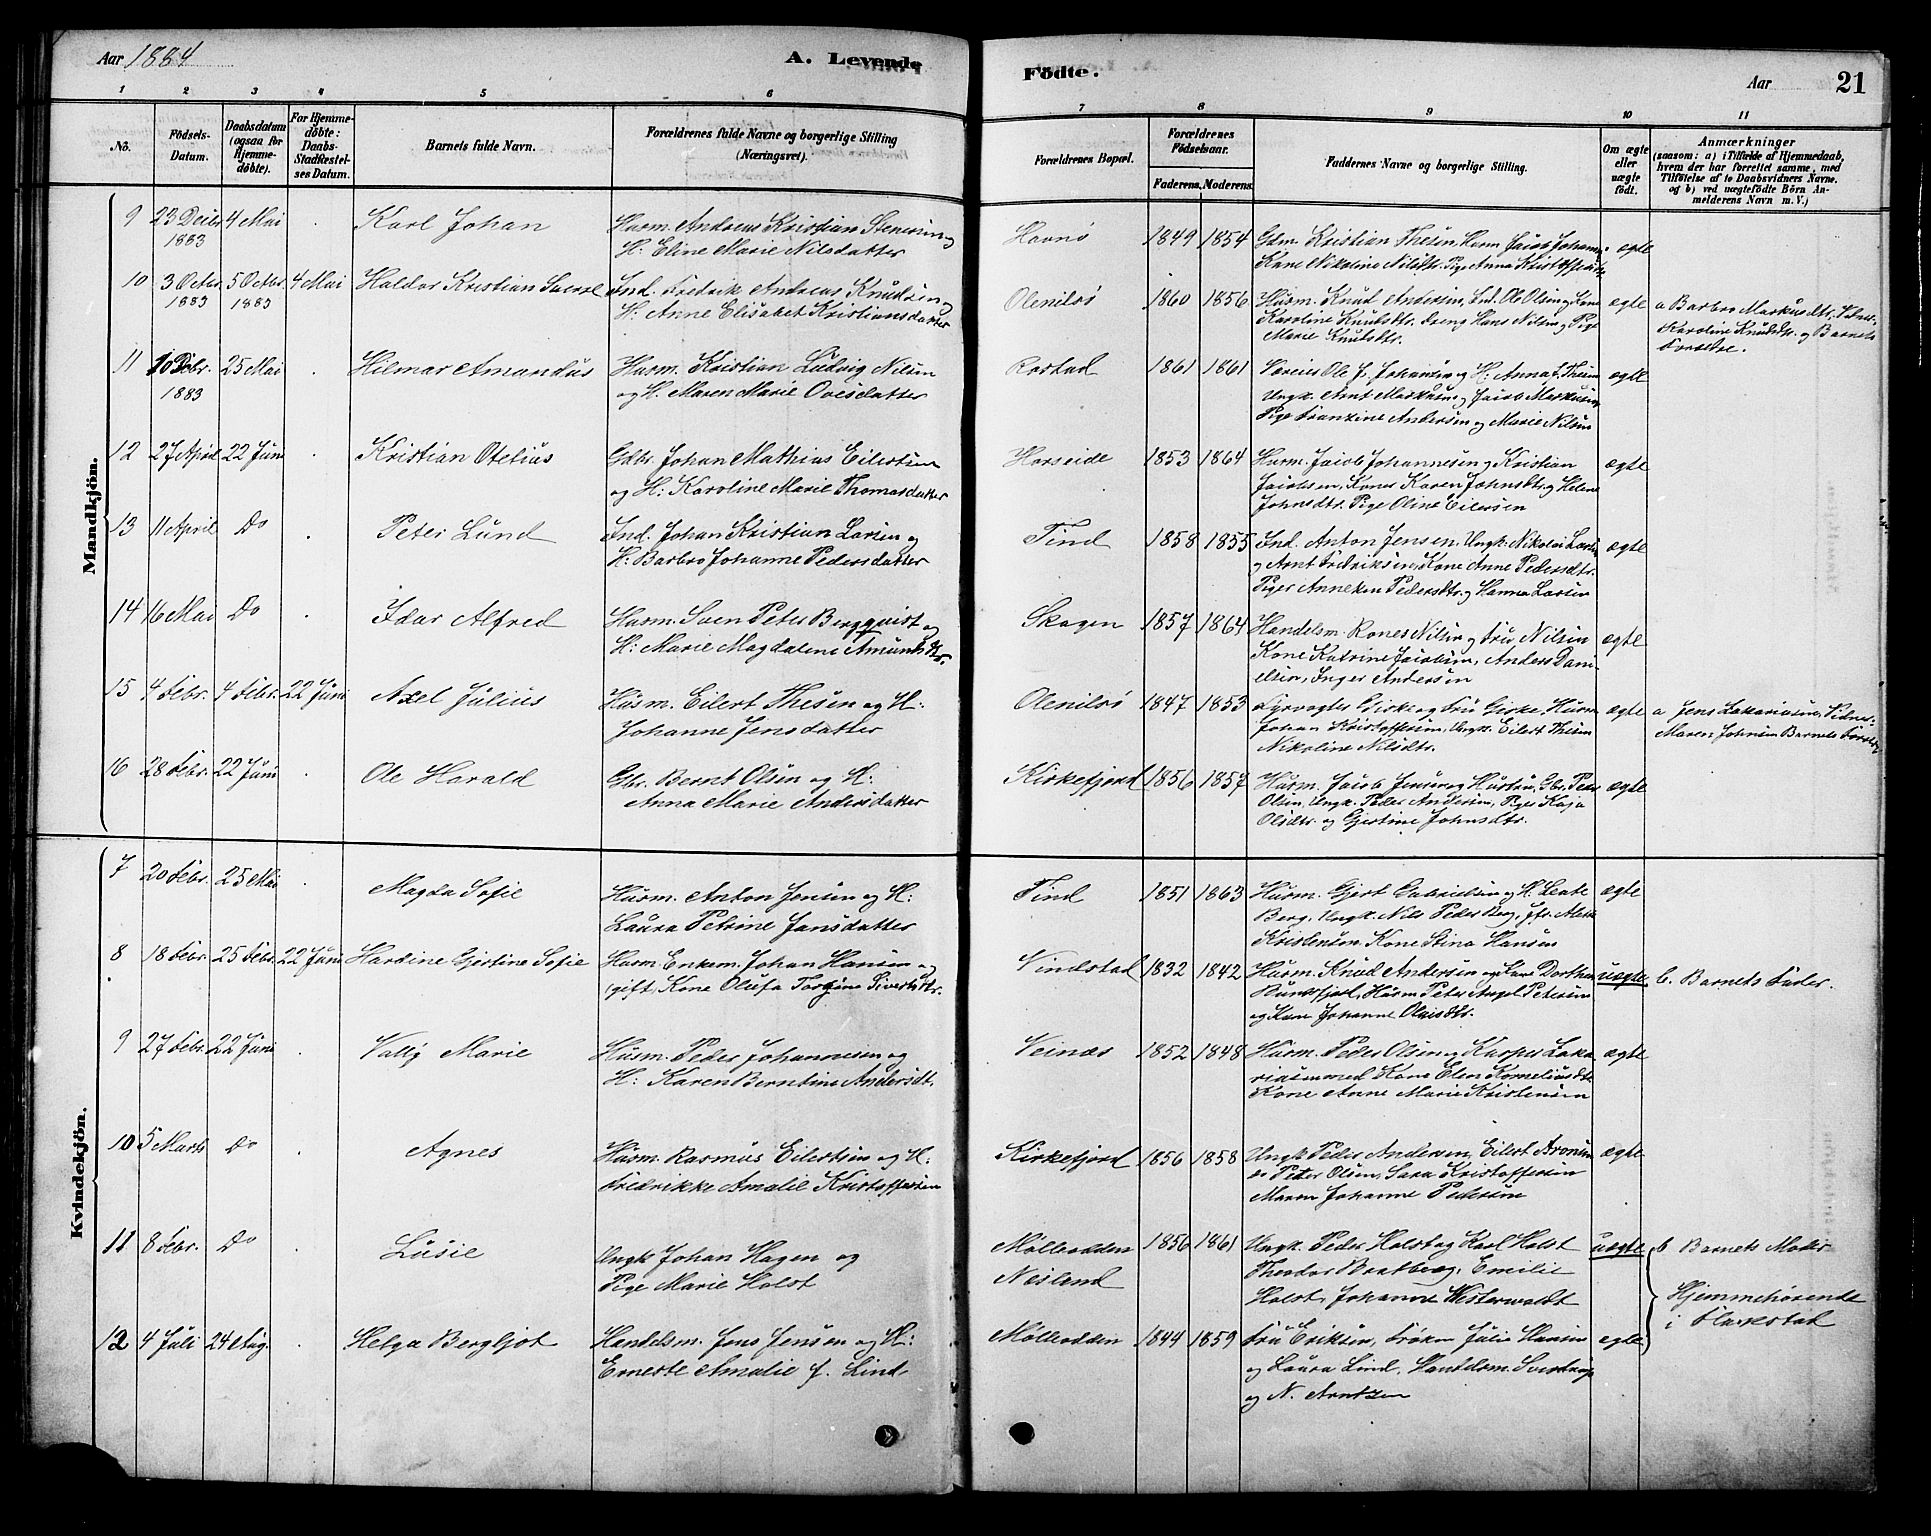 Aar 1884
A. Levende
Födte.
Aar
21
1 2 3 4 5 6 7 8 9 10 11
No.
Födsels-Datum.
Daabsdatum (ogsaa for Hjemmedöbte).
For Hjemmedöbte: Daabs-Stadfæstelses Datum.
Barnets fulde Navn.
Forældrenes fulde Navne og borgerlige Stilling
(Næringsvei).
Forældrenes Bopæl.
Forældrenes Födselsaar.
Faderens. Moderens.
Faddernes Navne og borgerlige Stilling.
Om ægte eller uægte födt.
Anmærkninger
(saasom: a) i Tilfælde af Hjemmedaab,
hvem der har forrettet samme, med
Tilföielse af to Daabsvidners Navne.
og b) ved uægtefödte Börn Anmelderens Navn m. V.)
Mandkjön.
9 23 Decbr 1883 4 Mai Karl Johan
Husm. Andreas Kristian Stensen og
H. Eline Marie Nilsdatter
Havnø 1849 1854
Gdm. Kristian Thesen, Husm Jacob Johans.
Kone Nikoline Nilsdtr. Pige Anna Kristoffersdtr
ægte
10 3 Octbr 1883 5 Octbr 1883 4 Mai Haldor Kristian
Ind. Fredrik Andreas Knudsen og
H. Anne Elisabet Kristiansdatter
Olenilsø 1860 1856
Husm. Knud Andersen, Ind. Ole Olsen og Kone
Karoline Knudsdtr. Dreng Hans Nilsen og Pige
Marie Knudsdtr.
ægte
a Barbro Markusdtr. Vidner:
Karoline Knudsdtr. og Barnets
Forældre.
11 10 Febr. 1883 25 Mai Hilmar Amandus
Husm. Kristian Ludvig Nilsen
og H. Maren Marie Ovesdatter
Rostad 1861 1861
Ole J. Johansen og H. Anna Thesen
Ungk. Arnt Markusen og Jacob Markusen
Pige Franzine Andersen og Marie Nilsen
ægte
12 27 April 22 Juni Kristian Otelius
Gdbr. Johan Mathias Eilertsen
og H: Karoline Marie Thomasdatter
Horseide 1853 1864
Husm. Jacob Johannesen og Kristian
Jacobsen, Kones Karen Johnsdtr. og Helene
Johnsdtr. Pige Oline Eilersen
ægte
13 11 April Do Peter Lund
Ind. Johan Kristian Larsen og
H: Barbro Johanne Pedersdatter
Tind 1858 1855
Ind. Anton Jensen, Ungk. Nikolai Larsen
og Arnt Fredriksen, Kone Anne Pedersdtr.
Piger Anneken Pedersdtr. og Hanna Larsen
ægte
14 16 Mai Do Idar Alfred
Husm. Sven Peter Bergqvist og
H: Marie Magdalene Amundsdtr.
Skagen 1857 1864
Handelsm. Rones Nilsen og Fru Nilsen
Kone Katrine Jacobsen, Anders Dani-
elsen, Inger Andersen
ægte
15 4 Febr. 4 Febr. 22 Juni Axel Julius
Husm. Eilert Thesen og H:
Johanne Jensdatter
Olenilsø 1847 1853
Fyrvogter Giske og Fru Giske, Husm
Johan Kristoffersen, Ungk. Eilert Thesen
Nikoline Nilsdtr.
ægte
a Jens Zakariasen, Vidner:
Maren Johnsen Barnets Forældre
16 28 Febr. 22 Juni Ole Harald
Gbr. Bernt Olsen og H:
Anna Marie Andersdatter
Kirkefjord 1856 1857
Husm. Jacob Jensen og Hustru, Gbr. Peder
Olsen, Ungk. Peder Andersen, Pige Kaja
Olsdtr. og Gjertine Johnsdtr.
ægte
Kvindekjön.
7 20 Febr. 25 Mai Magda Sofie
Husm. Anton Jensen og H:
Laura Petrine Jansdatter
Tind 1851 1863
Husm. Gjert Gabrielsen og H. Beate
Berg, Ungk. Nils Peder Berg, Jfr.
Kristensen Kone Stina Hansen
ægte
8 18 Febr. 25 Febr. 22 Juni Hardine Gjertine Sofie
Husm. Enkem. Johan Hansen og
(gift) Kone Olufa Torgine Sivertsdtr.
Vindstad 1832 1842
Husm. Knud Andersen og Kone Dorthea
Bunesfjord, Husm Peter Angel Petersen
og Kone Johanne Olaisdtr.
uægte
b. Barnets Fader.
9 27 Febr. 22 Juni Valby Marie
Husm. Peder Johannesen og
H: Karen Berntine Andersdt.
Veinæs 1852 1848
Husm. Peder Olsen og Kasper Zaka-
riasen med Kone Elen Korneliusdtr
Kone Anne Marie Kristensen
ægte
10 5 Marts Do Agnes
Husm. Rasmus Eilertsen og H:
Fredrikke Amalie Kristoffersen
Kirkefjord 1856 1858
Ungk Peder Andersen, Eilert Aronsen
Peder Olsen, Sara Kristoffersen
Maren Johanne Pedersen
ægte
11 8 Febr. Do Lusie
Ungk Johan Hagen og
Pige Marie Holst
Mølleodden
Nesland
1856 1861
Ungk. Peder Holst og Karl Holst
Theodor Braatberg, Emilie
Holst, Johanne Westerwaldt
uægte
b Barnets Moder
Hjemmehørende
i Flakstad
12 4 Juli 24 Aug. Helga Bergljot
Handelsm. Jens Jensen og H:
Erneste Amalie f. Lind
Mølleodden 1844 1859
Fru Eriksen, Frøken Julie Hansen
og Laura Lind, Handelsm. Sverdrup
og N. Arntzen
egte